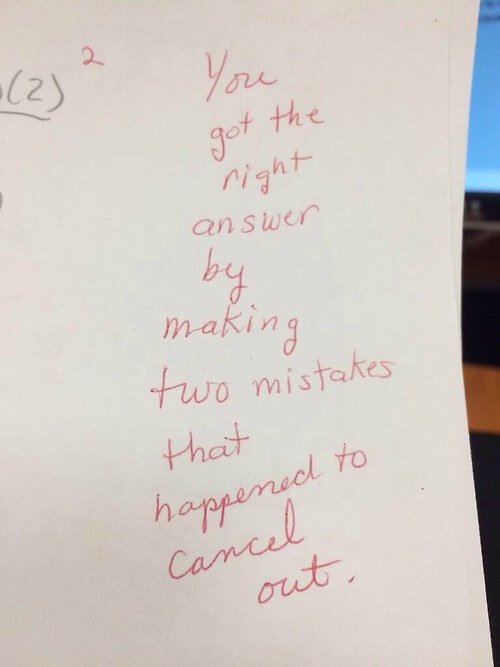 (2)
2
You
got the
right
answer
by
making
two mistakes
that
happened to
cancel
out.